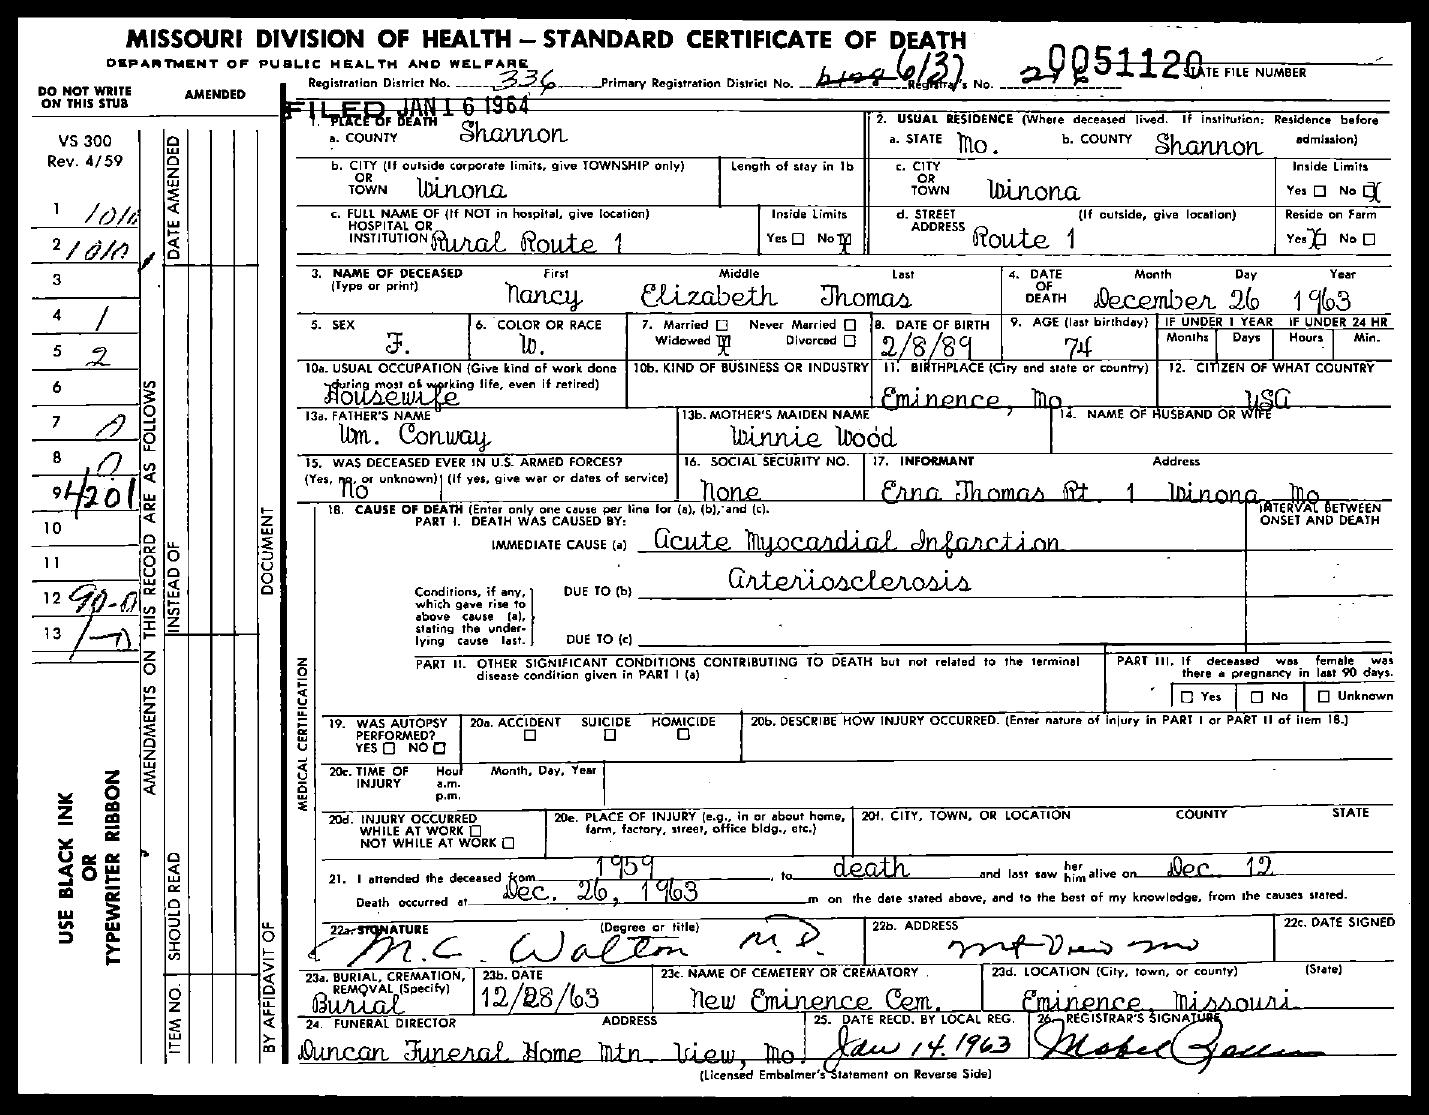 MISSOURI DIVISION OF HEALTH — STANDARD CERTIFICATE OF DEATH
DEPARTMENT OF PUBLIC HEALTH AND WELFARE
0051120 STATE FILE NUMBER
Registration District No. 336 Primary Registration District No. 6137 Registrar's No.
FILED JAN 16 1964
DO NOT WRITE ON THIS STUB
AMENDED
VS 300
Rev. 4/59
1
2
3
4 1
5 2
6
7 0
8 0
9 4201
10
11
12 90-0
13
USE BLACK INK
OR
TYPEWRITER RIBBON
AMENDMENTS ON THIS RECORD ARE AS FOLLOWS
DATE AMENDED
INSTEAD OF
SHOULD READ
ITEM NO.
DOCUMENT
BY AFFIDAVIT OF
MEDICAL CERTIFICATION
1. PLACE OF DEATH
a. COUNTY Shannon
2. USUAL RESIDENCE (Where deceased lived. If institution: Residence before admission)
a. STATE Mo. b. COUNTY Shannon
b. CITY (If outside corporate limits, give TOWNSHIP only) OR TOWN Winona
Length of stay in 1b
c. CITY OR TOWN Winona
Inside Limits Yes □ No X
c. FULL NAME OF (If NOT in hospital, give location) HOSPITAL OR INSTITUTION Rural Route 1
Inside Limits Yes □ No X
d. STREET ADDRESS (If outside, give location) Route 1
Reside on Farm Yes X No □
3. NAME OF DECEASED (Type or print) First Middle Last
Nancy Elizabeth Thomas
4. DATE OF DEATH Month Day Year
December 26 1963
5. SEX F.
6. COLOR OR RACE W.
7. Married □ Never Married □ Widowed X Divorced □
8. DATE OF BIRTH 2/8/89
9. AGE (last birthday) 74
IF UNDER 1 YEAR Months Days
IF UNDER 24 HR Hours Min.
10a. USUAL OCCUPATION (Give kind of work done during most of working life, even if retired) Housewife
10b. KIND OF BUSINESS OR INDUSTRY
11. BIRTHPLACE (City and state or country) Eminence, Mo
12. CITIZEN OF WHAT COUNTRY USA
13a. FATHER'S NAME Wm. Conway
13b. MOTHER'S MAIDEN NAME Winnie Wood
14. NAME OF HUSBAND OR WIFE
15. WAS DECEASED EVER IN U.S. ARMED FORCES? (Yes, no, or unknown) (If yes, give war or dates of service) No
16. SOCIAL SECURITY NO. None
17. INFORMANT Address
Erna Thomas Rt. 1 Winona, Mo.
18. CAUSE OF DEATH (Enter only one cause per line for (a), (b), and (c).
INTERVAL BETWEEN ONSET AND DEATH
PART I. DEATH WAS CAUSED BY:
IMMEDIATE CAUSE (a) Acute Myocardial Infarction
Conditions, if any, which gave rise to above cause (a), stating the underlying cause last.
DUE TO (b) Arteriosclerosis
DUE TO (c)
PART II. OTHER SIGNIFICANT CONDITIONS CONTRIBUTING TO DEATH but not related to the terminal disease condition given in PART I (a)
PART III. If deceased was female was there a pregnancy in last 90 days.
□ Yes □ No □ Unknown
19. WAS AUTOPSY PERFORMED? YES □ NO □
20a. ACCIDENT □ SUICIDE □ HOMICIDE □
20b. DESCRIBE HOW INJURY OCCURRED. (Enter nature of injury in PART I or PART II of item 18.)
20c. TIME OF INJURY Hour a.m. p.m. Month, Day, Year
20d. INJURY OCCURRED WHILE AT WORK □ NOT WHILE AT WORK □
20e. PLACE OF INJURY (e.g., in or about home, farm, factory, street, office bldg., etc.)
20f. CITY, TOWN, OR LOCATION COUNTY STATE
21. I attended the deceased from 1959, to death and last saw her him alive on Dec. 12
Death occurred at Dec. 26, 1963 m on the date stated above, and to the best of my knowledge, from the causes stated.
22a. SIGNATURE (Degree or title) M.C. Walton M.D.
22b. ADDRESS Mt View Mo
22c. DATE SIGNED
23a. BURIAL, CREMATION, REMOVAL (Specify) Burial
23b. DATE 12/28/63
23c. NAME OF CEMETERY OR CREMATORY New Eminence Cem.
23d. LOCATION (City, town, or county) (State) Eminence, Missouri
24. FUNERAL DIRECTOR ADDRESS
Duncan Funeral Home Mtn. View, Mo.
25. DATE RECD. BY LOCAL REG. Jan 14. 1963
26. REGISTRAR'S SIGNATURE Mabel
(Licensed Embalmer's Statement on Reverse Side)